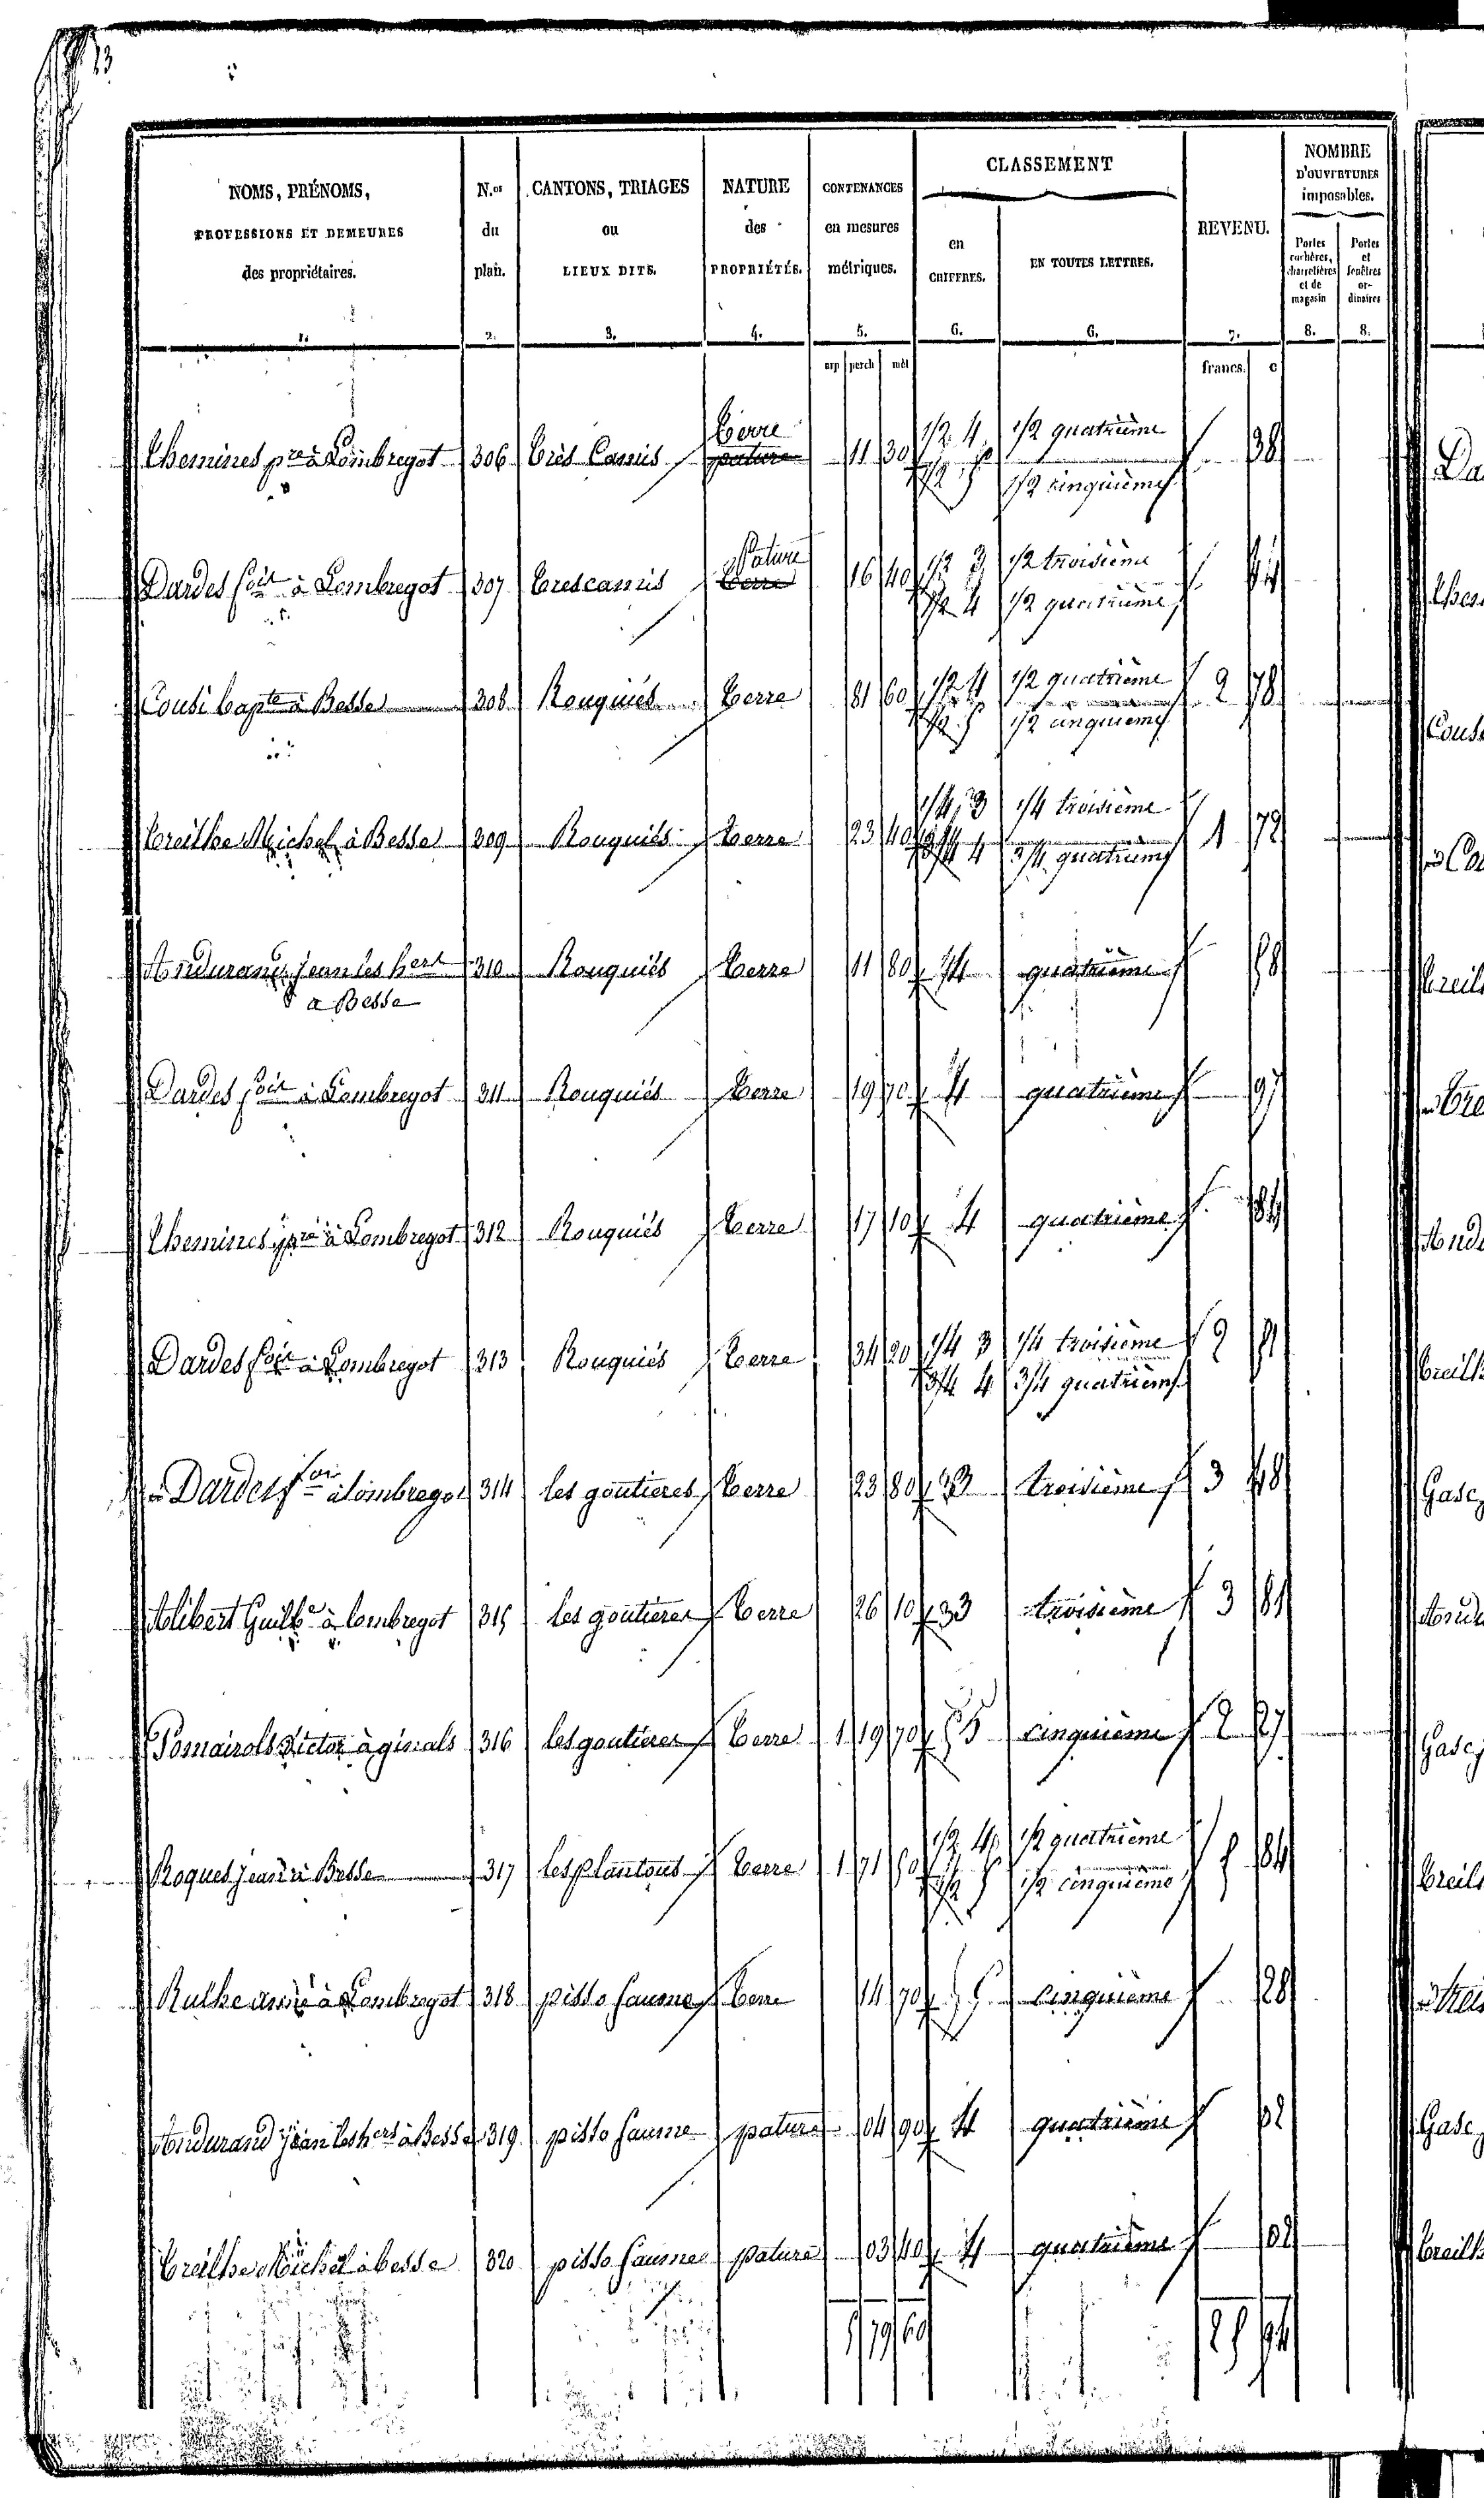 13
NOMS, PRÉNOMS,
PROFESSIONS ET DEMEURES
des propriétaires.
1.
N.os
du
plan.
2.
CANTONS, TRIAGES
ou
LIEUX DITS.
3.
NATURE
des
PROPRIÉTÉS.
4.
CONTENANCES
en mesures
métriques.
5.
CLASSEMENT
en
CHIFFRES.
6.
EN TOUTES LETTRES.
6.
REVENU.
7.
NOMBRE
D'OUVERTURES
imposables.
Portes
cochères,
charretières
et de
magasin
8.
Portes
et
fenêtres
or-
dinaires
8.
arp perch mèt
francs. c
Chemines pre à Lombregot 306 Très Cassis Terre 11 30 1/2 4 1/2 quatrième 38
pature 1/2 5 1/2 cinquième
Dardes à Lombregot 307 Trescassis Pature 16 40 1/2 3 1/2 troisième
Terre 1/2 4 1/2 quatrième
Cousi bapte à Besse 308 Rouquiés Terre 81 60 1/2 4 1/2 quatrième 2 78
1/2 5 1/2 cinquième
Treilhe Michel à Besse 309 Rouquiés Terre 23 40 1/4 3 1/4 troisième 1 72
3/4 4 3/4 quatrième
Andurand jean les hers 310 Rouquiés Terre 11 80 4 quatrième 58
a Besse
Dardes à Lombregot 311 Rouquiés Terre 19 70 4 quatrième 97
Chemines pre à Lombregot 312 Rouquiés Terre 17 10 4 quatrième 84
Dardes à Lombregot 313 Rouquiés Terre 34 20 1/4 3 1/4 troisième 2 51
3/4 4 3/4 quatrième
Dardes à lombregot 314 les goutieres Terre 23 80 3 troisième 3 48
Alibert Guilhe à lombregot 315 les goutieres Terre 26 10 3 troisième 3 81
Pomairols Victor à ginals 316 les goutieres Terre 1 19 70 5 cinquième 2 27
Roques jean à Besse 317 les plantous Terre 1 71 1/2 4 1/2 quatrième 5 84
1/2 5 1/2 cinquième
Rulhe à Lombregot 318 pisso saume Terre 14 70 5 cinquième 28
Andurand jean les hers à Besse 319 pisso saume pature 04 90 4 quatrième 02
Treilhe Michel à besse 320 pisso saume pature 03 40 4 quatrième 02
5 79 60 25 94